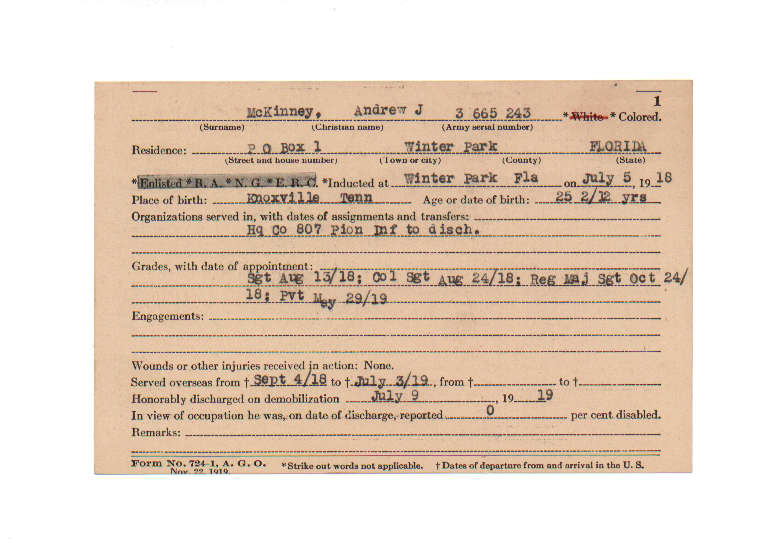 1
McKinney, Andrew J 3 665 243 * White * Colored.
(Surname) (Christian name) (Army serial number)
Residence: P O Box 1 Winter Park FLORIDA
(Street and house number) (Town or city) (County) (State)
*Enlisted * R. A. * N. G. * E. R. C. *Inducted at Winter Park Fla on July 5, 1918
Place of birth: Knoxville Tenn Age or date of birth: 25 2/12 yrs
Organizations served in, with dates of assignments and transfers:
Hq Co 807 Pion Inf to disch.
Grades, with date of appointment:
Sgt Aug 13/18; Col Sgt Aug 24/18; Reg Maj Sgt Oct 24/
18; Pvt May 29/19
Engagements:
Wounds or other injuries received in action: None.
Served overseas from † Sept 4/18 to † July 3/19, from † to †
Honorably discharged on demobilization July 9, 1919
In view of occupation he was, on date of discharge, reported 0 per cent disabled.
Remarks:
Form No. 724-1, A. G. O. *Strike out words not applicable. † Dates of departure from and arrival in the U. S.
Nov. 22, 1919.